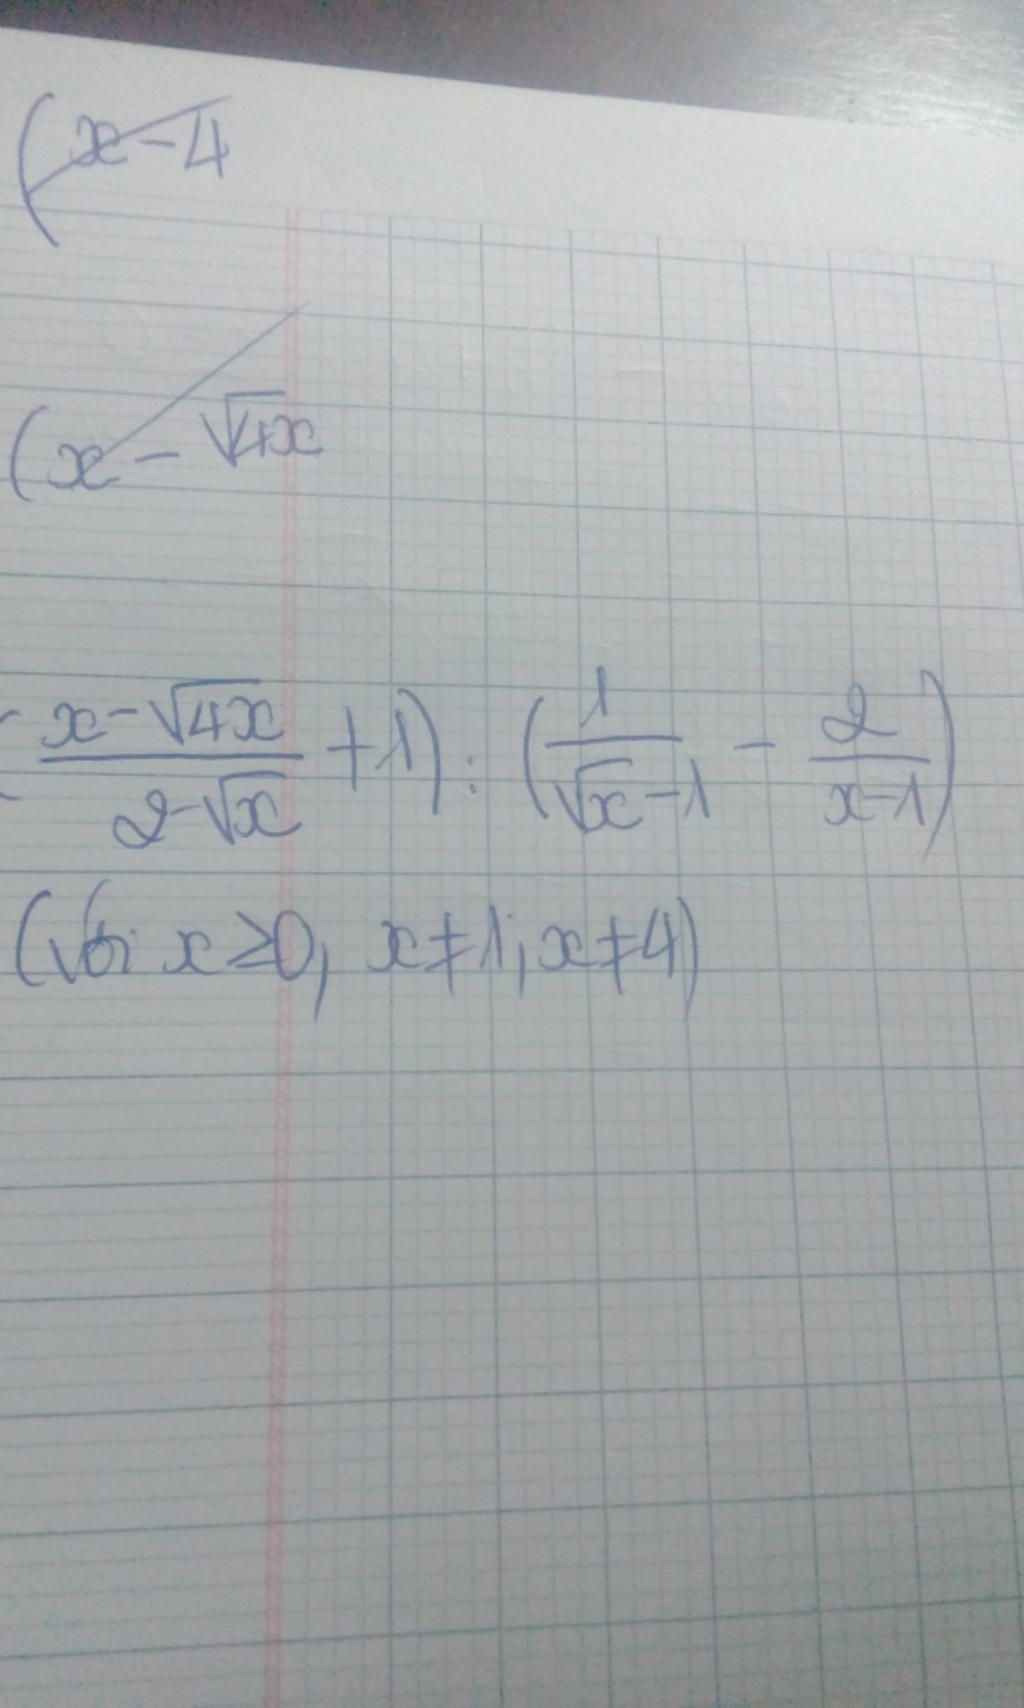 (x-4
(x-√4x
(x-√4x / 2-√x + 1) : (1 / √x-1 - 2 / x-1)
(Với x≥0, x≠1, x≠4)